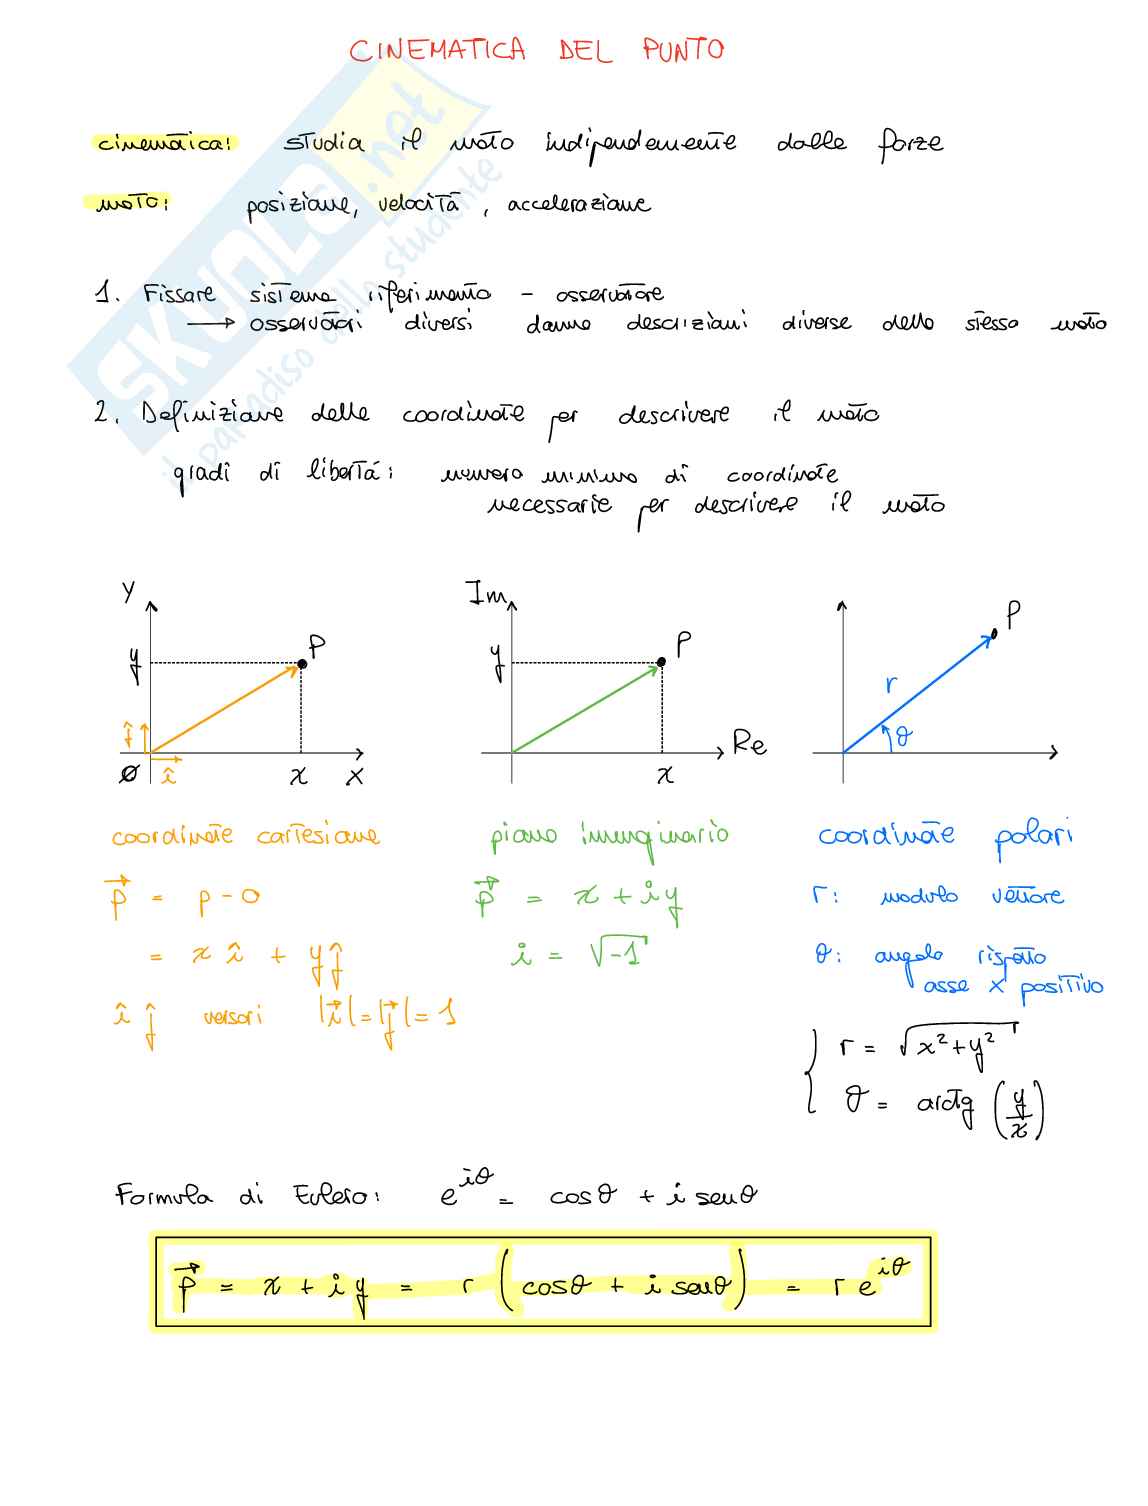 CINEMATICA DEL PUNTO
cinematica: studia il moto indipendemente dalle forze
moto: posizione, velocità, accelerazione
1. Fissare sistema riferimento - osservatore
→ osservatori diversi danno descrizioni diverse dello stesso moto
2. Definizione delle coordinate per descrivere il moto
gradi di libertà: numero minimo di coordinate
necessarie per descrivere il moto
Y
y
P
ĵ
O
î
x
X
Im
y
P
Re
x
P
r
θ
coordinate cartesiane
p⃗ = P - O
= x î + y ĵ
î ĵ versori |i⃗| = |j⃗| = 1
piano immaginario
p⃗ = x + iy
i = √-1
coordinate polari
r: modulo vettore
θ: angolo rispetto
asse x positivo
{ r = √x² + y²
θ = arctg (y/x)
Formula di Eulero: e^iθ = cosθ + i senθ
p⃗ = x + iy = r (cosθ + i senθ) = r e^iθ
SKUOLA.net
il paradiso dello studente